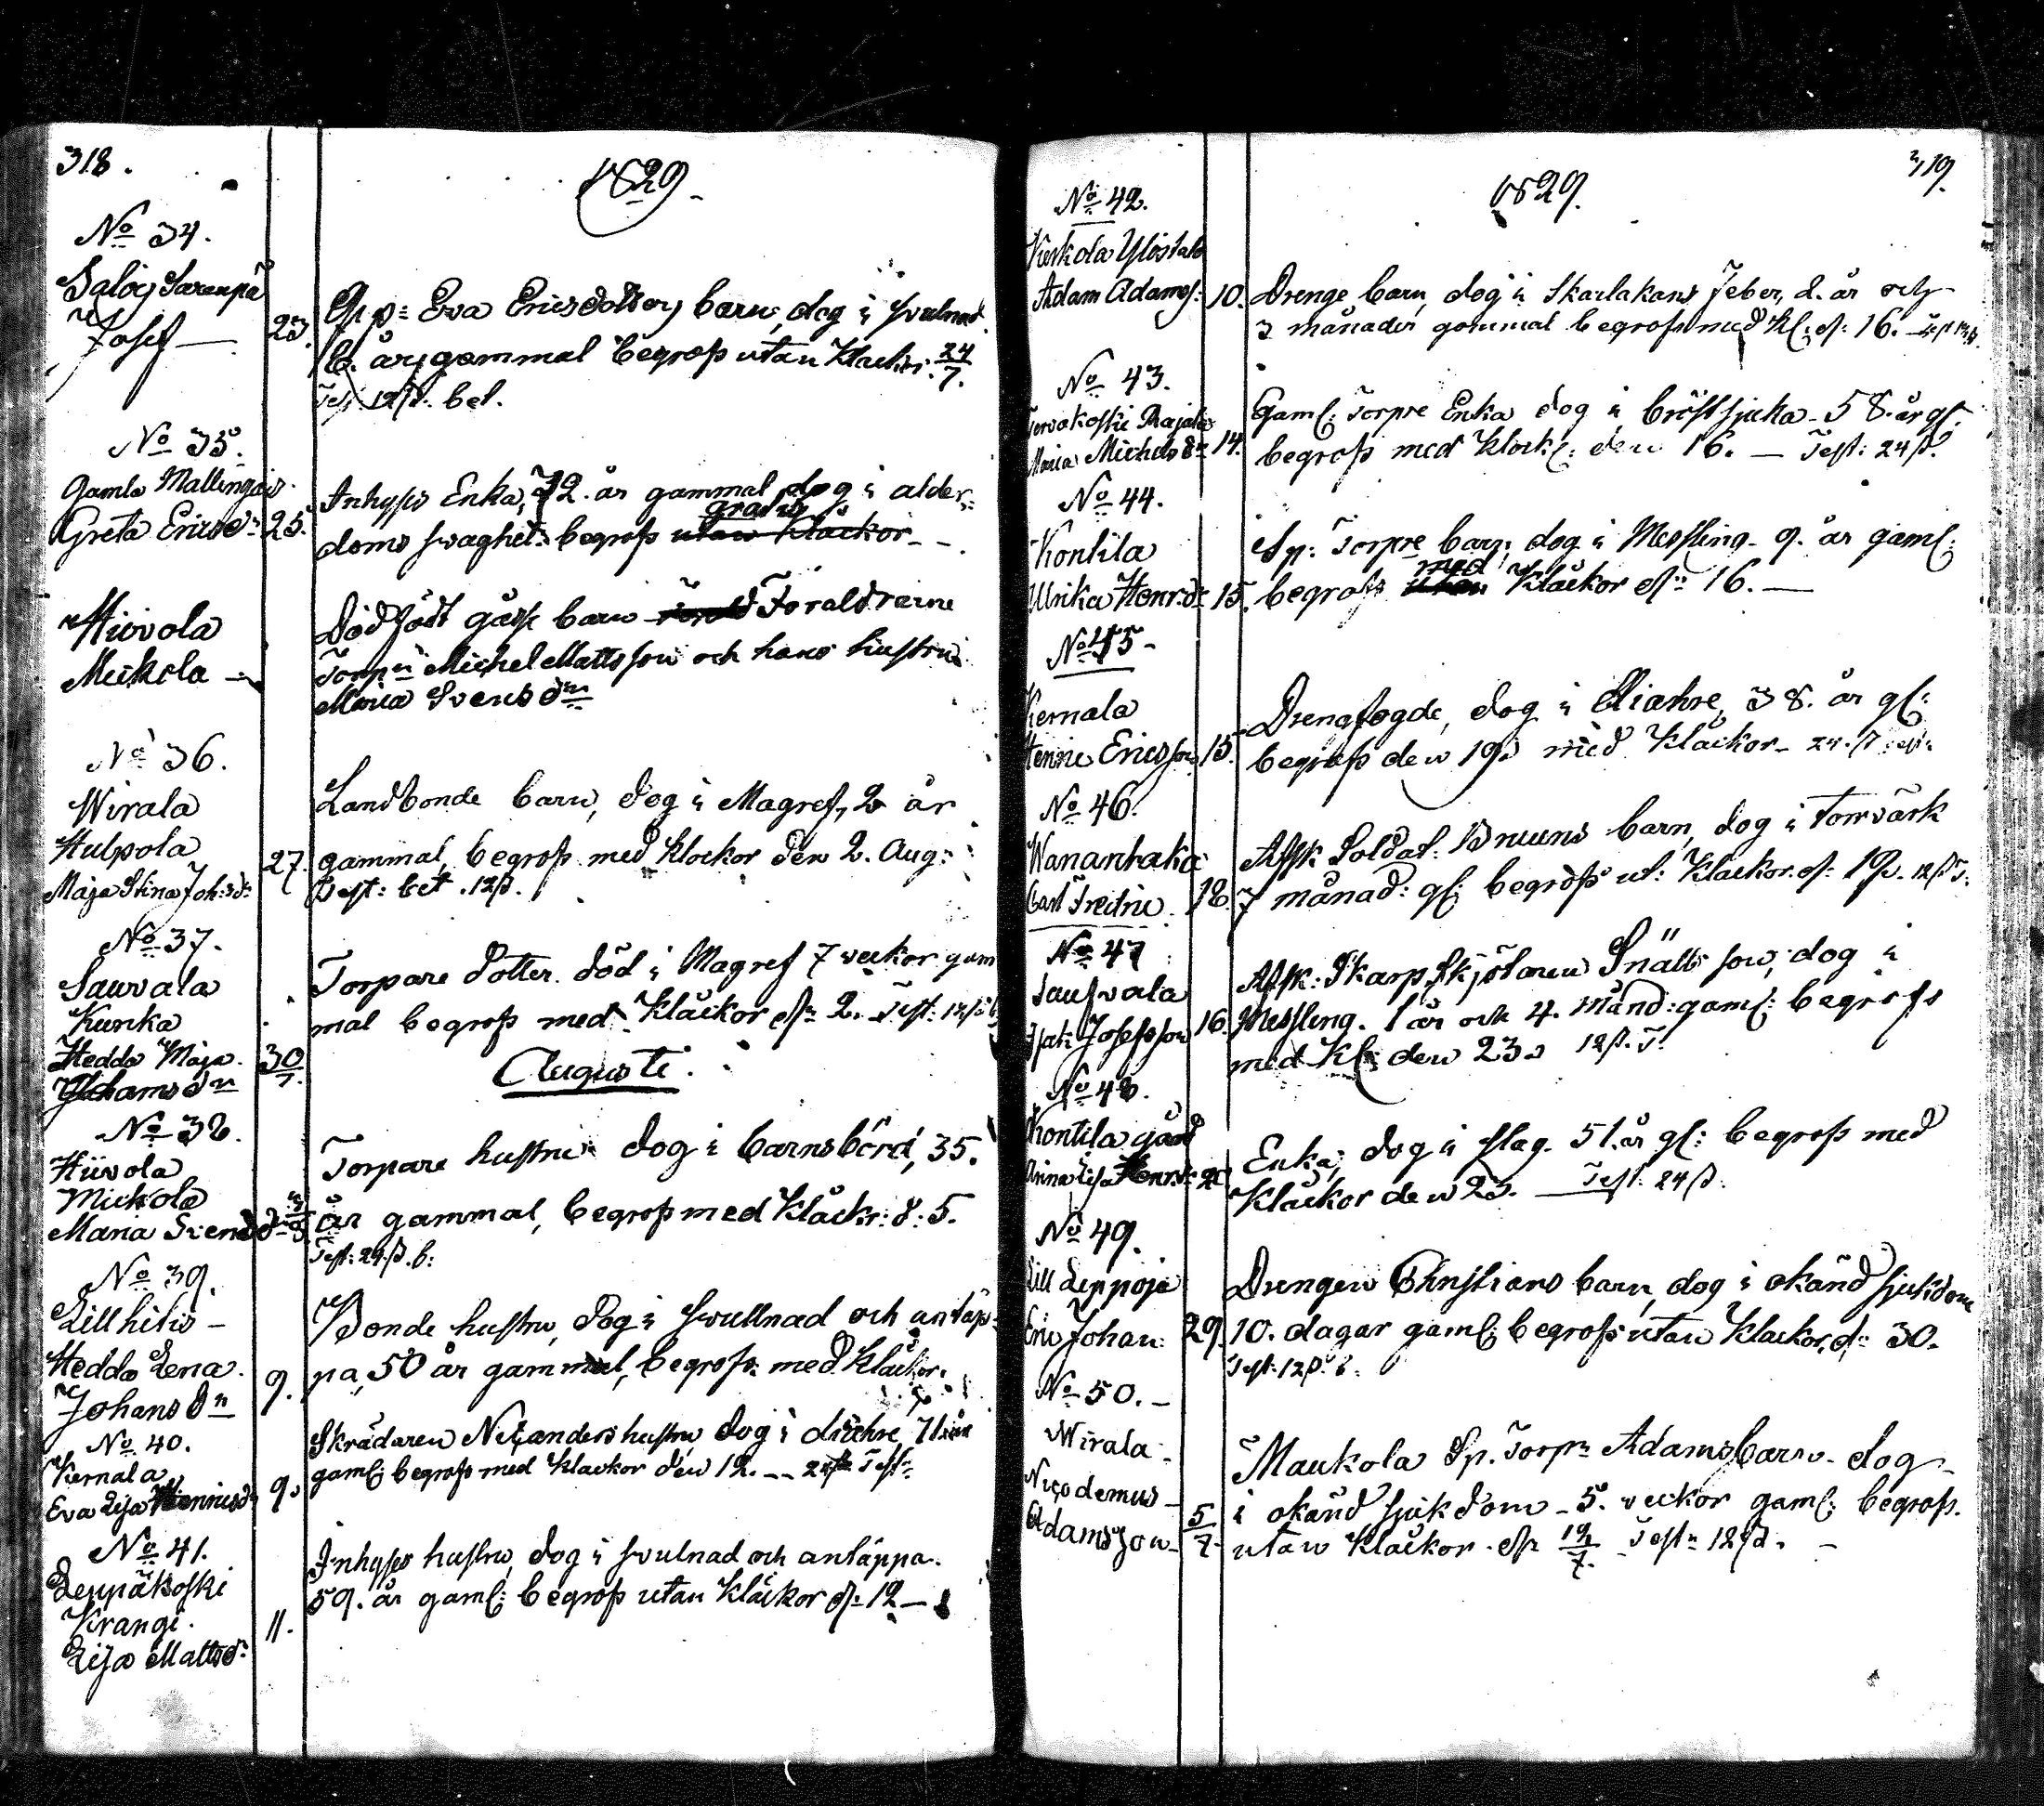 318.
1829.
No 34.
Salois Sarenpä
Josef — 23.
Eva Ericsdotters barn, dog i svulnad
6. år gammal begrofs utan Klockor. 24/7.
Test: 12 ß. bet.
No 35.
Gamla Mallingais
Greta Ericsdr 25.
Inhyses Enka, 72. år gammal dog i alder-
doms svaghet: begrofs utan Klockor
gratis
Hiivola
Mickola
Dödfödt gåsse barn Föraldrarne
Torp: Michel Mattsson och hans hustru
Maria Svensdr
No 36.
Wirala
Hulpola
Maja Stina Joh:sdr 27.
Landbonde barn, dog i Magref, 2 år
gammal, begrofs med Klockor den 2. Aug:
Test: bet. 12 ß.
No 37.
Sauvala
Kunka
Hedda Maja
Adamsdn 30/7.
Torpare dotter död i Magref 7 veckor gam
mal begrofs med Klåckor dn 2. Test: 12 ß
Augusti.
No 38.
Hiivola
Mickola
Maria Svensdn 3/8
Torpare hustru dog i barnsbörd, 35.
år gammal, begrofs med Klåckr: d: 5.
Test: 24 ß. b:
No 39.
Lillhitis —
Hedda Lena
Johansdn 9.
Bonde hustru, dog i svullnad och antäp-
pa, 50 år gammal, begrofs med Klåckor.
No 40.
Kernala
Eva Lisa Henricsd 9.
Skrädaren Nelanders hustru dog i diarhe, 71 år
gaml: begrofs med Klackor den 12. — 24 ß Test:
No 41.
Leppäkoski
Krangi.
Lisa Mattsd: 11.
Inhyses hustru, dog i svulnad och antäppa.
59. år gaml: begrofs utan Klåckor d: 12 —
319.
1829.
No 42.
Kerkola Ylöstalo
Adam Adams: 10.
Drenge barn, dog i Skarlakans Feber, 2. år och
3 månader gammal begrofs med Kl: d: 16.
No 43.
Tervakoskie Rajala
Maria Michelsdr 14.
Gaml: Torpre Enka dog i bröstsjuka 58. år gl:
begrofs med Klock: den 16. — Test: 24 ß.
No 44.
Kontila
Ulrika Henr:dr 15.
Sp: Torpre barn, dog i Messling 9. år gaml:
med
begrofs utan Klåckor dn 16. —
No 45 —
Kernala
Henric Ericsson 15.
Drengfogde, dog i diarhre, 38. år gl:
begrofs den 19. med Klåckor — 24. ß test:
No 46.
Wanantaka
Carl Fredric 18.
Afsk. Soldat: Bruuns barn, dog i Torrvärk
7 månad: gl: begrofs ut: Klåckor. d: 19. 12 ß T:
No 47
Saufvala
Isak Josefsson 16.
Afsk: Skarp Skjötaren Snälls son, dog i
Messling. 1 år och 4. månd: gaml: begrofs
med Kl: den 23. 12 ß. T.
No 48.
Kontila gård
Anna Lisa Henrsd: 20
Enka, dog i slag. 51. år gl: begrofs med
Klåckor den 23. — Test: 24 ß.
No 49.
Lill Leppoja
Eric Johan: 29.
Drengen Christians barn, dog i okänd sjukdom
10. dagar gaml: begrofs utan Klåckor, d: 30.
Test: 12 ß. b:
No 50. —
Wirala
Nicodemus
Adamsson 5/7
Maukola Sp. Torp: Adams barn. dog
i okänd sjukdom 5. veckor gaml: begrofs.
utan Klåckor dn 12/7. Test: 12 ß.